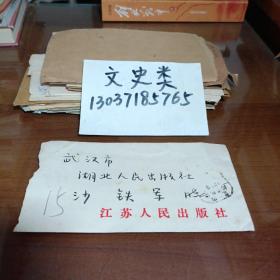 文史类
13037185765
武汉市
湖北人民出版社
15 沙铁军
江苏人民出版社